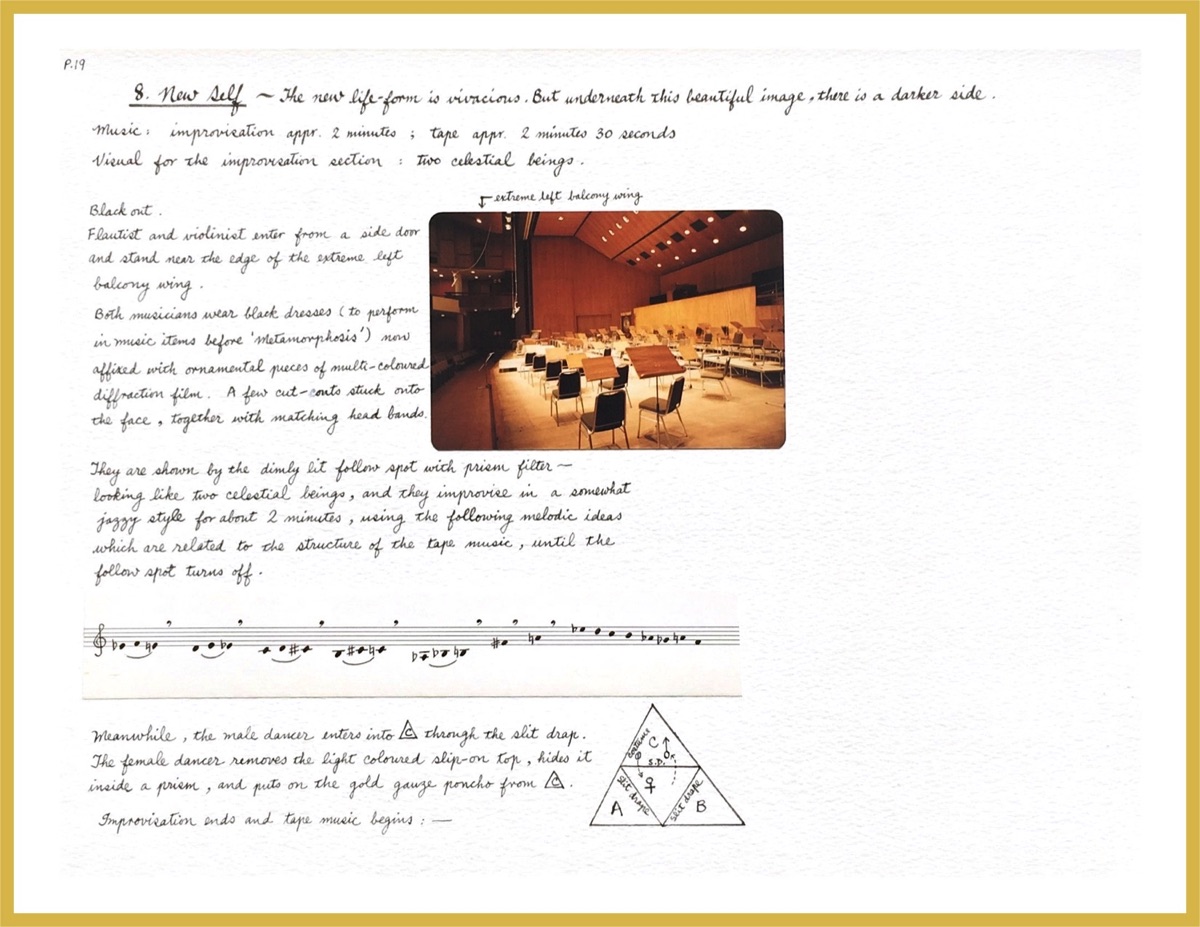 P.19
8. New Self ~ The new life-form is vivacious. But underneath this beautiful image, there is a darker side.
Music: improvisation appr. 2 minutes ; tape appr. 2 minutes 30 seconds
Visual for the improvisation section : two celestial beings.
extreme left balcony wing
Black out.
Flautist and violinist enter from a side door
and stand near the edge of the extreme left
balcony wing.
Both musicians wear black dresses (to perform
in music items before 'metamorphosis') now
affixed with ornamental pieces of multi-coloured
diffraction film. A few cut-outs stuck onto
the face, together with matching head bands.
They are shown by the dimly lit follow spot with prism filter —
looking like two celestial beings, and they improvise in a somewhat
jazzy style for about 2 minutes, using the following melodic ideas
which are related to the structure of the tape music, until the
follow spot turns off.
Meanwhile, the male dancer enters into C through the slit drap.
The female dancer removes the light coloured slip-on top, hides it
inside a prism, and puts on the gold gauze poncho from C.
Improvisation ends and tape music begins : —
costume
C
S.D.
slit drape
A
slit drape
B